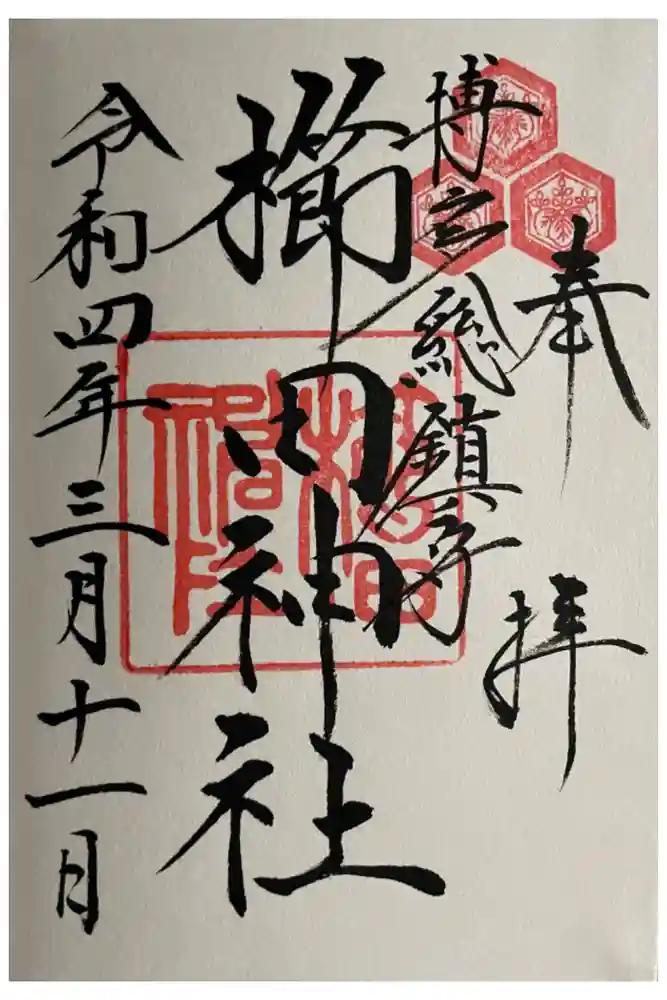 奉拝
博多総鎮守
櫛田神社
令和四年三月十一日